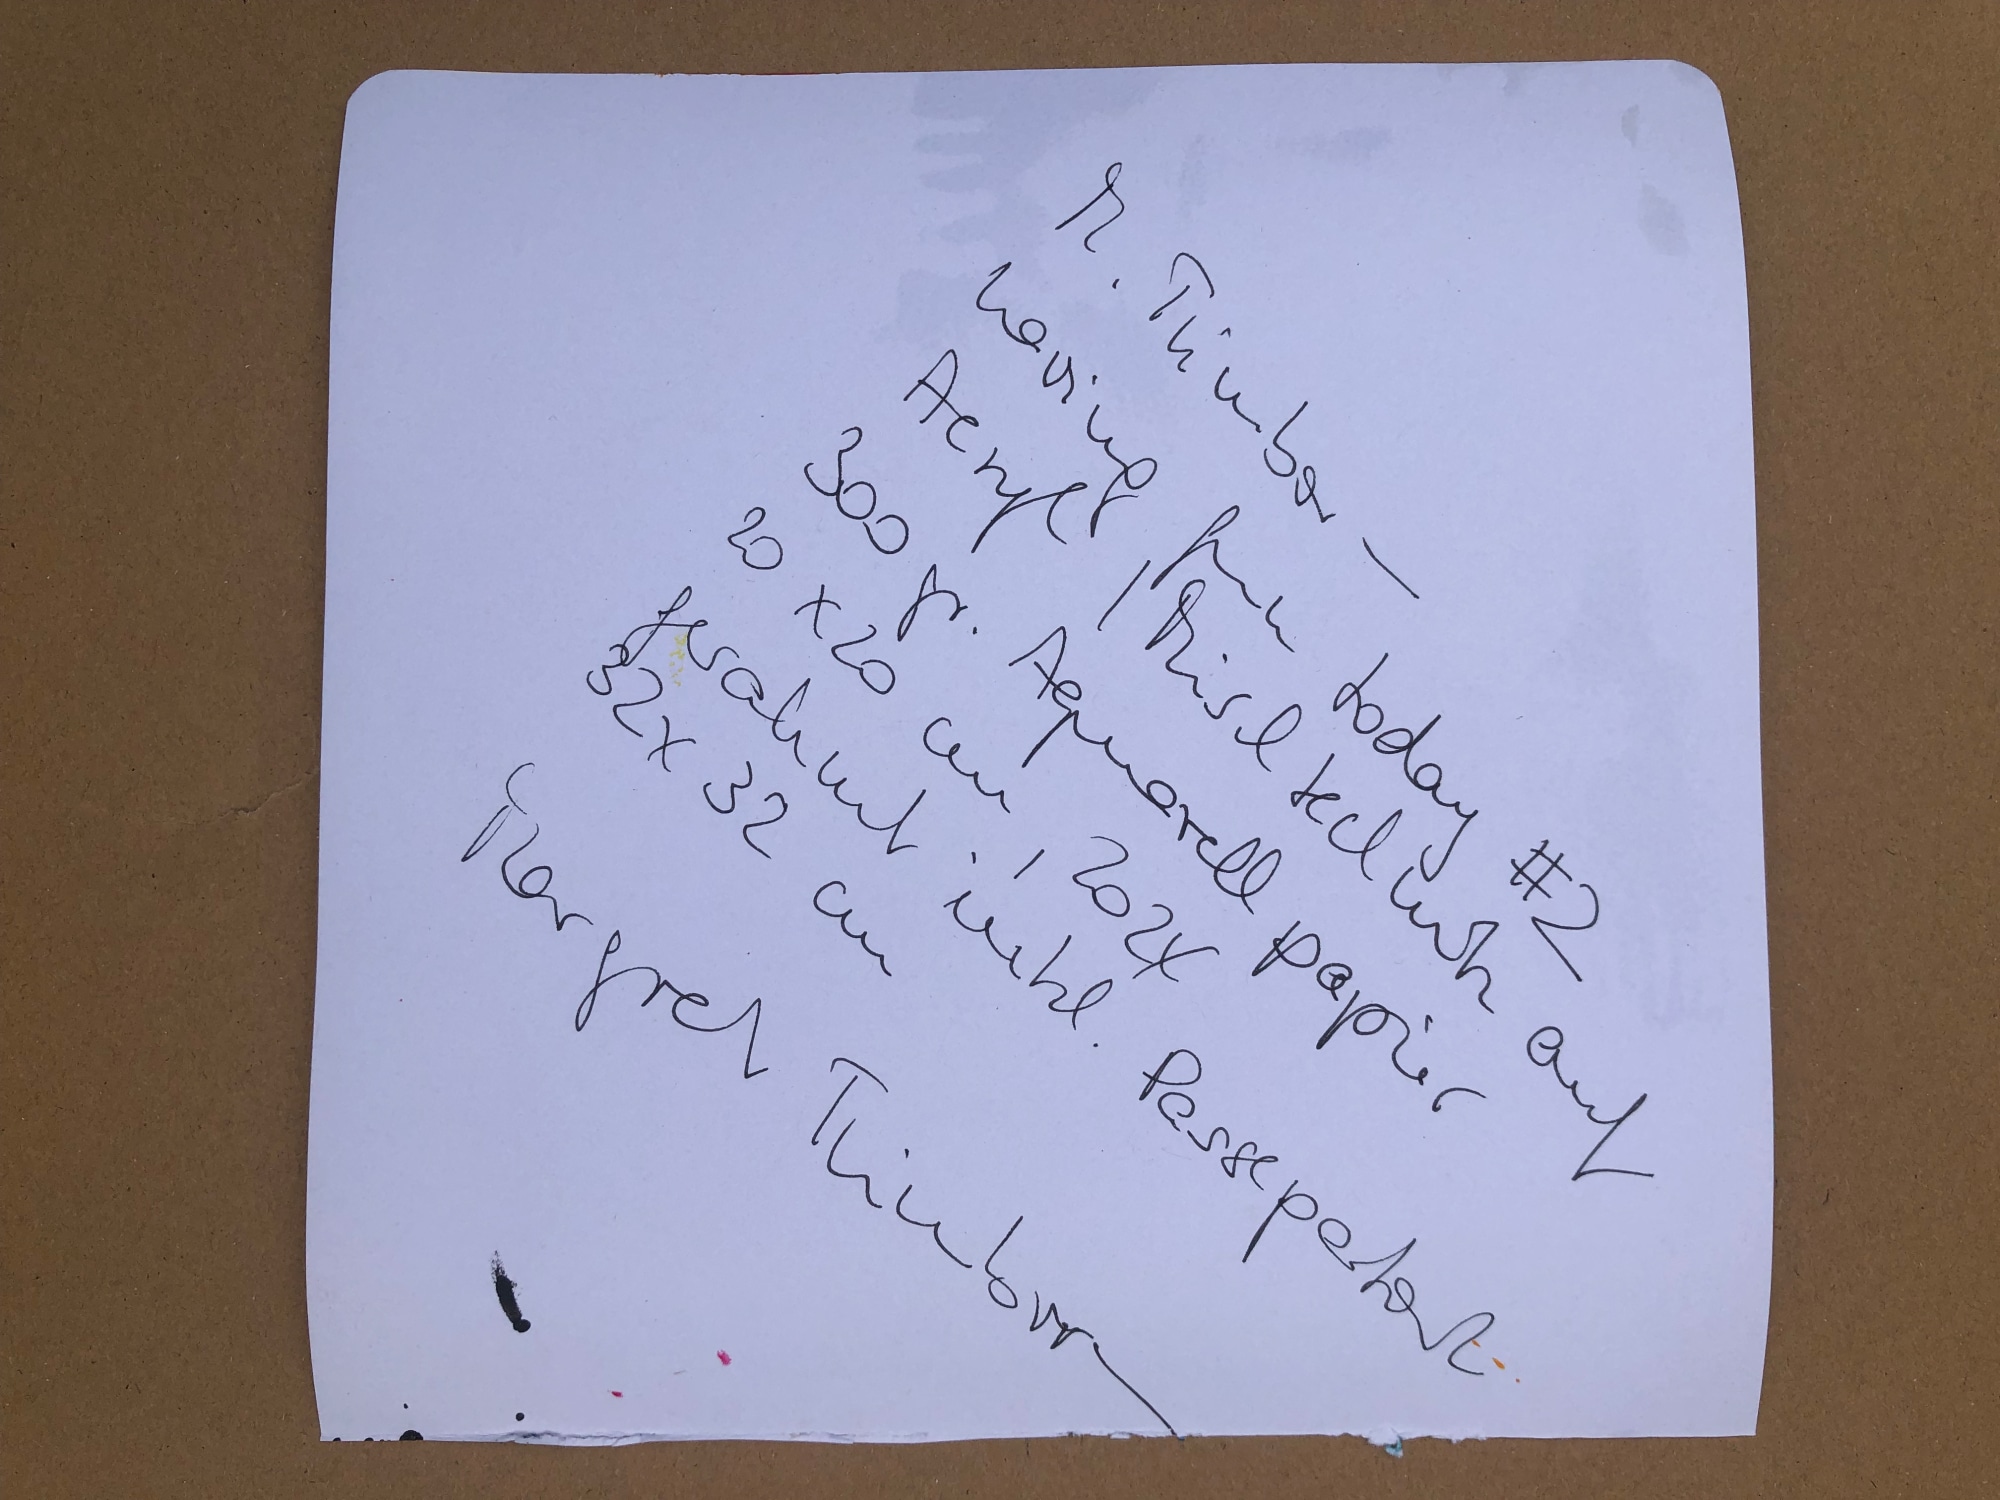 M. Thimbor –
having fun today #2
Acryl / Mischtechnik auf
300 gr. Aquarell papier
20 x 20 cm / 2024
gerahmt. inkl. Passepatout
32 x 32 cm
Margret Thimbor